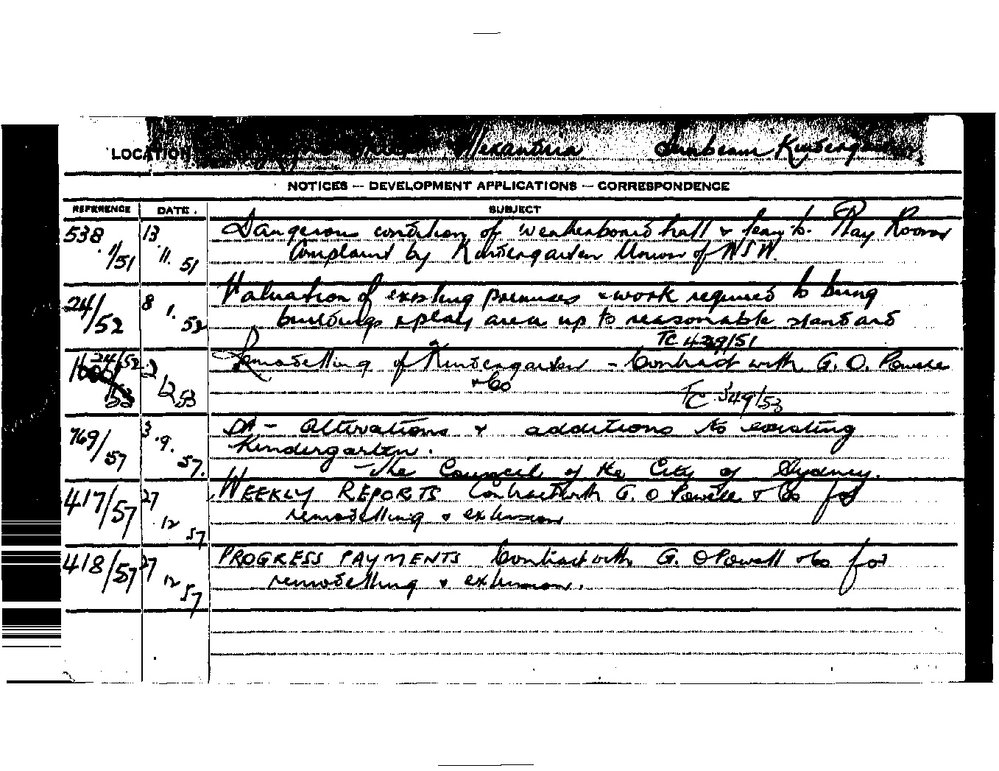 LOCATION Alexandria Sunbeam Kindergn
NOTICES — DEVELOPMENT APPLICATIONS — CORRESPONDENCE
REFERENCE DATE. SUBJECT
538/51 13.11.51 Dangerous condition of weatherboard hall & lean to. Play Rooms
Complaint by Kindergarten Union of NSW.
24/52 8 1. 52 Valuation of existing premises & work required to bring
buildings & play area up to reasonable standard
TC 429/51
24/52 2 12 53 Remodelling of Kindergarten - Contract with G. O. Powell
& Co TC 549/53
769/57 3.9.57. DA - Alterations & additions to existing
Kindergarten.
- The Council of the City of Sydney.
417/57 27 12 57 WEEKLY REPORTS Contract with G. O Powell & Co for
remodelling & extension
418/57 27 12 57 PROGRESS PAYMENTS Contract with G. O Powell & Co for
remodelling & extension.